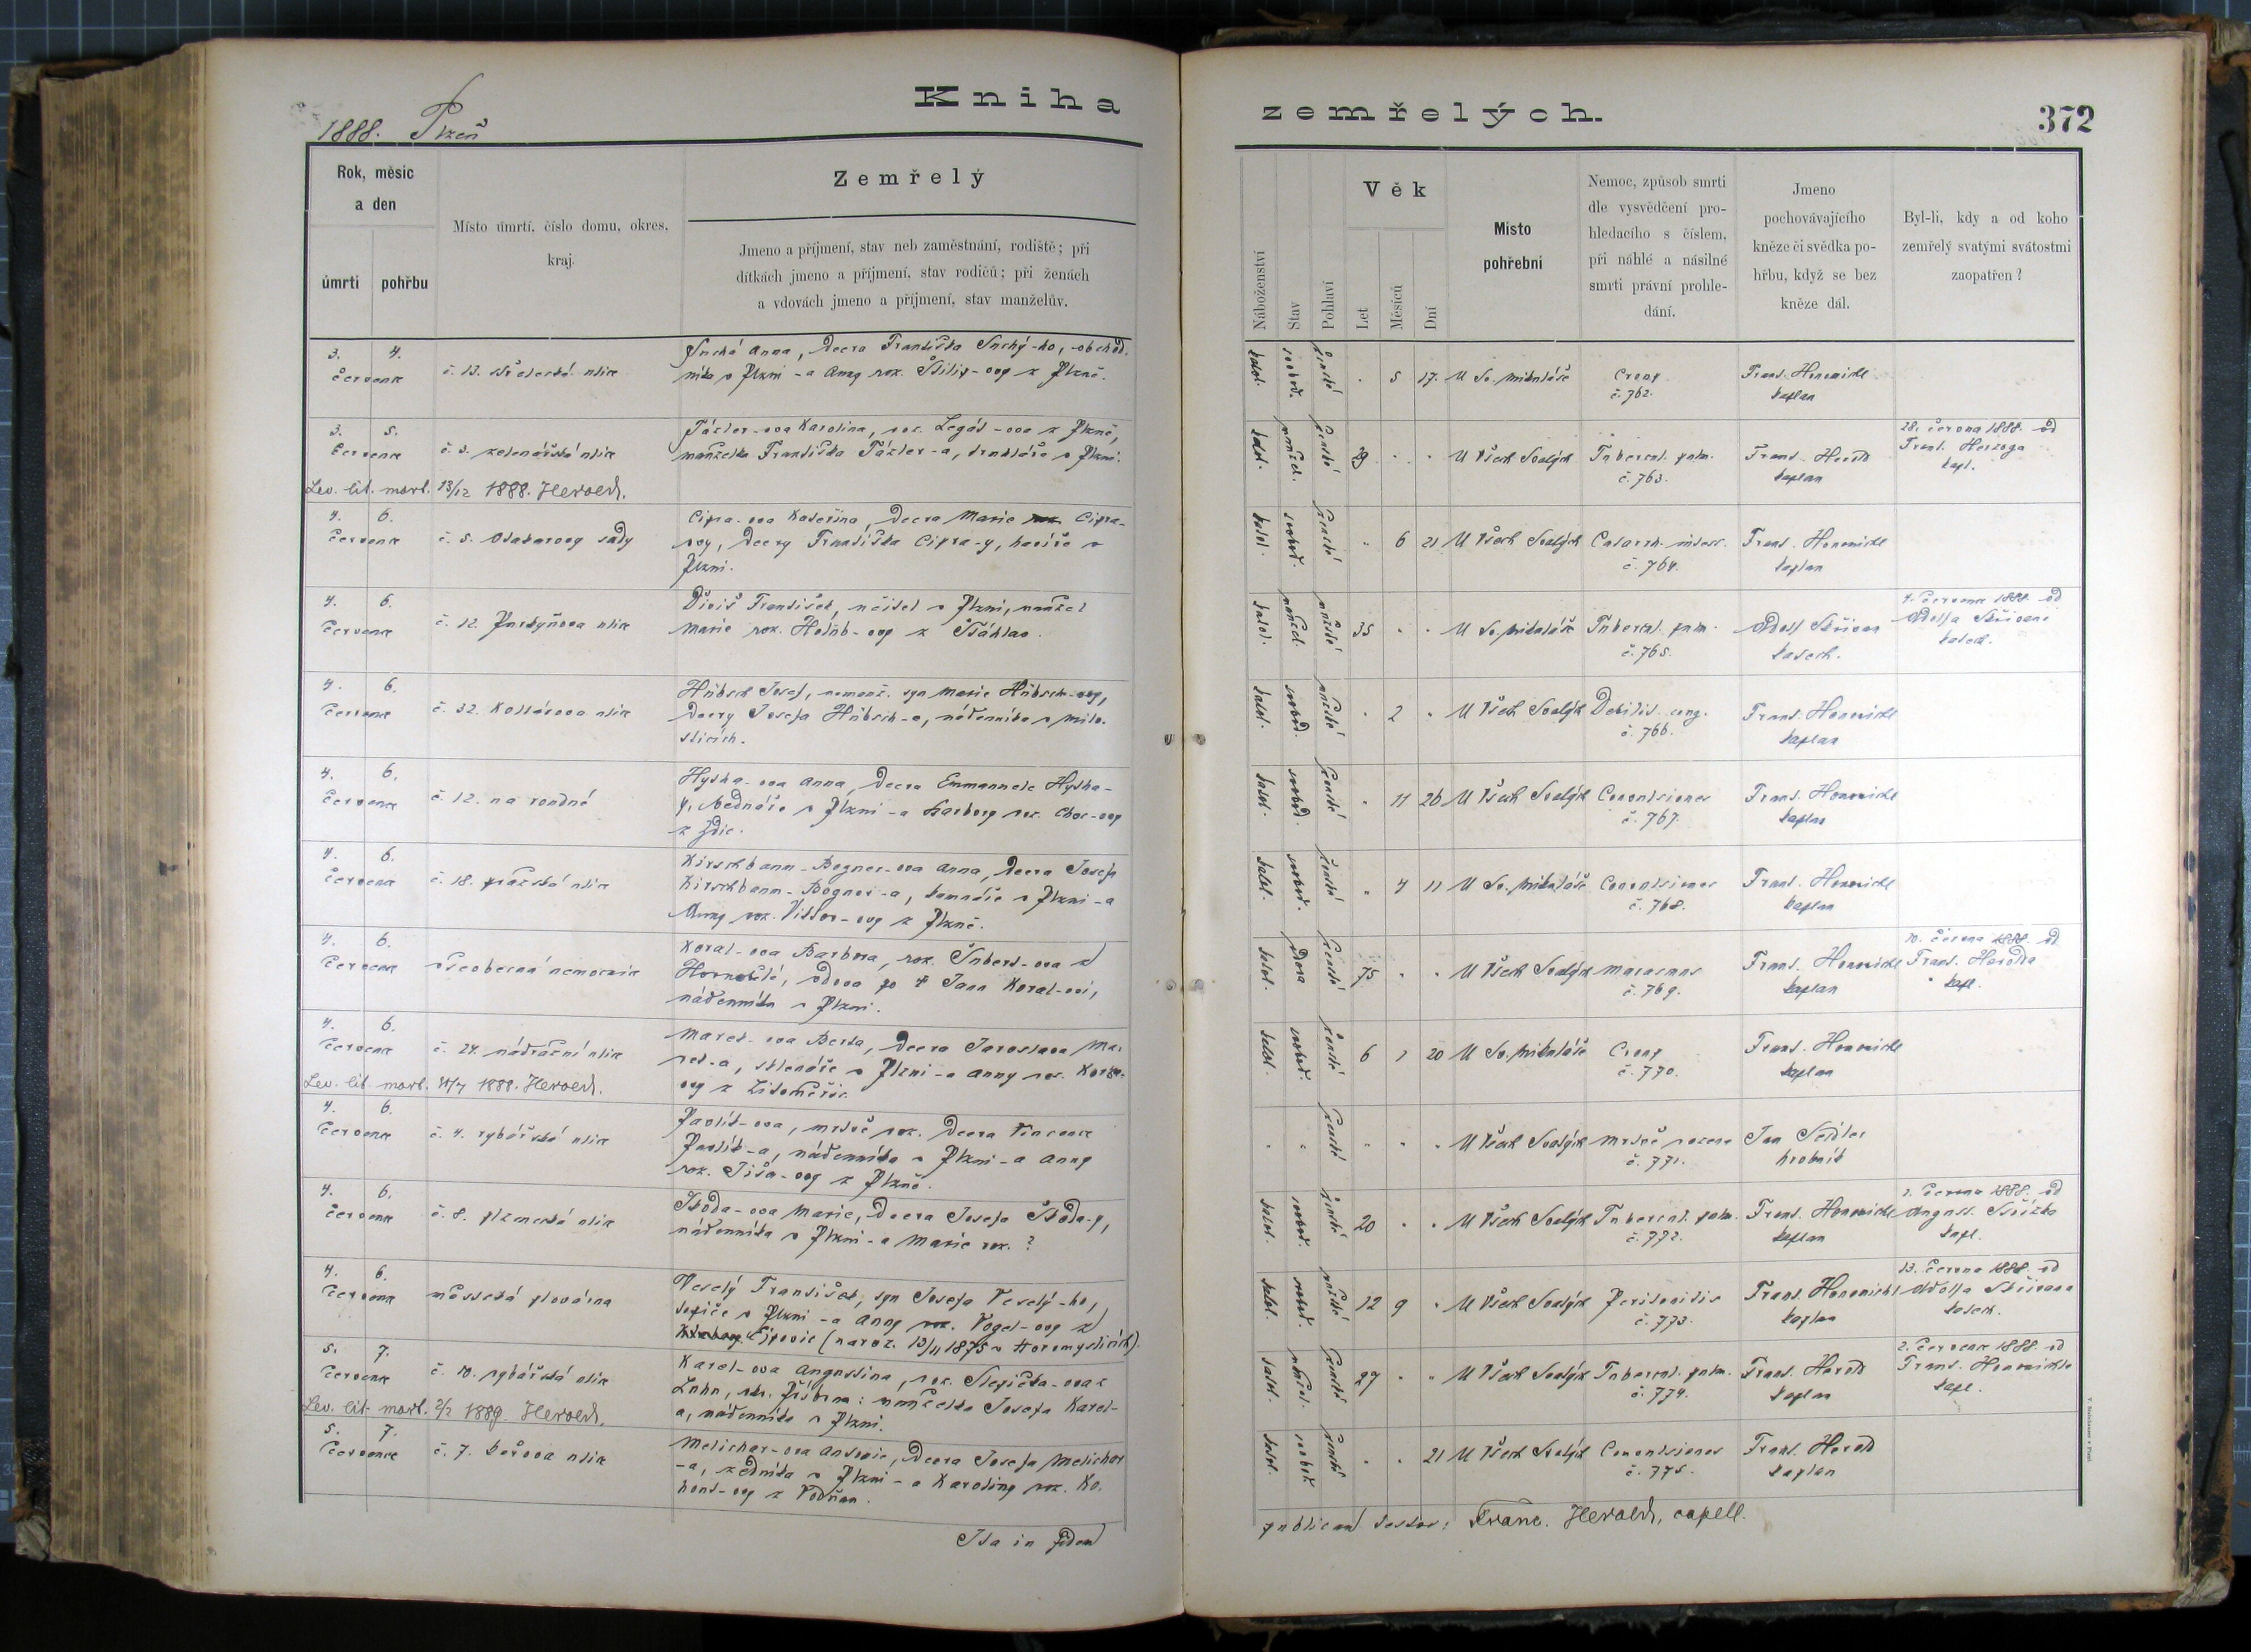 1888. Plzeň
Kniha
zemřelých.
372
Rok, měsíc
a den
úmrtí
pohřbu
Místo úmrtí, číslo domu, okres,
kraj.
Zemřelý
Jmeno a příjmení, stav neb zaměstnání, rodiště; při
dítkách jmeno a příjmení, stav rodičů; při ženách
a vdovách jmeno a příjmení, stav manželův.
Náboženství
Stav
Pohlaví
Věk
Let
Měsíců
Dní
Místo
pohřební
Nemoc, způsob smrti
dle vysvědčení pro-
hledacího s číslem,
při náhlé a násilné
smrti právní prohle-
dání.
Jmeno
pochovávajícího
kněze či svědka po-
hřbu, když se bez
kněze dál.
Byl-li, kdy a od koho
zemřelý svatými svátostmi
zaopatřen?
3. 4.
července
Suchá Anna, dcera Františka Suchý-ho, obchod.
níka v Plzni a Anny roz. z Plzně.
katol. svobod. ženské . 5 17. U Sv. Mikuláše
č. 762.
Frant. Honomichl
kaplan
3. 5.
července
č. 3. zelenářská ulice
Karolina, roz. z Plzně,
manželka Františka truhláře v Plzni.
Lev. lit. mort. 13/12 1888. Herold.
katol. manžel. ženské . . U Všech Svatých
Tubercul. pulm.
č. 763.
Frant. Herold
kaplan
28. června 1888. od
Frant. Herolda
kapl.
4. 6.
července
č. 5. sady
Cipra-ova Kateřina, dcera Marie Cipra-
ovy, dcery Františka Cipra-y, havíře v
Plzni.
katol. svobod. ženské . 6 21 U Všech Svatých
Catarrh. intest.
č. 764.
Frant. Honomichl
kaplan
4. 6.
července
č. 12. Purkyňova ulice
Diviš František, učitel v Plzni, manžel
Marie roz. Holub-ovy z Šťáhlav.
katol. manžel. mužské 35 . . U Sv. Mikuláše
Tubercul. pulm.
č. 765.
Adolf Skřivan
katech.
července 1888. od
Adolfa Skřivana
katech.
4. 6.
července
č. 32. Kollárova ulice
Hübsch Josef, nemanž. syn Marie Hübsch-ovy,
dcery Josefa Hübsch-a, nádenníka v Milo-
sticích.
katol. svobod. mužské . 2 . U Všech Svatých
Debilit. cong.
č. 766.
Frant. Honomichl
kaplan
4. 6.
července
č. 12. na rondné
Anna, dcera Emmanuele
bednáře v Plzni a Barbory roz. Choc-ovy
z Zdic.
katol. svobod. ženské . 11 26 U Všech Svatých
Convulsiones
č. 767.
Frant. Honomichl
kaplan
4. 6.
července
č. 18. pražská ulice
Kirschbaum-Bogner-ova Anna, dcera Josefa
Kirschbaum-Bogner-a, v Plzni a
Anny roz. z Plzně.
katol. svobod. ženské . 4 11 U Sv. Mikuláše
Convulsiones
č. 768.
Frant. Honomichl
kaplan
4. 6.
července
všeobecná nemocnice
Koral-ova Barbora, roz. Šubert-ova z
vdova po † Janu Koral-ovi,
nádenníku v Plzni.
katol. vdova ženské 75 . . U Všech Svatých
Marasmus
č. 769.
Frant. Honomichl
kaplan
10. června 1888. od
Frant. Herolda
kapl.
4. 6.
července
č. 24. nádražní ulice
Mareš-ova Berta, dcera Jaroslava Ma-
reš-a, sklenáře v Plzni a Anny roz.
ovy z Litoměřic
Lev. lit. mort. 1888. Herold.
katol. svobod. ženské 6 1 20 U Sv. Mikuláše
č. 770.
Frant. Honomichl
kaplan
4. 6.
července
č. 4. rybářská ulice
Pavlík-ova, mrtvě roz. dcera Vincence
Pavlík-a, nádenníka v Plzni a Anny
roz. Tišl-ovy z Plzně.
ženské . . . U Všech Svatých
mrtvě rozena
č. 771.
Jan Seidler
hrobník
4. 6.
července
č. 8. plzenecká ulice
Škoda-ova Marie, dcera Josefa Škoda-y,
nádenníka v Plzni a Marie roz. ?
katol. svobod. ženské 20 . . U Všech Svatých
Tubercul. pulm.
č. 772.
Frant. Honomichl
kaplan
1. června 1888. od
August.
kapl.
4. 6.
července
městská plovárna
Veselý František, syn Josefa Veselý-ho,
topiče v Plzni a Anny roz. Vogel-ovy z
Ejpovic (naroz. 13/11 1875 v Horomyslicích).
katol. svobod. mužské 12 9 . U Všech Svatých
Peritonitis
č. 773.
Frant. Honomichl
kaplan
13. června 1888. od
Adolfa Skřivana
katech.
5. 7.
července
č. 10. rybářská ulice
Karel-ova Augustina, roz. Slepička-ova z
okr. Příbram: manželka Josefa Karel-
a, nádenníka v Plzni.
Lev. lit. mort. 2/7 1889. Herold.
katol. manžel. ženské 27 . . U Všech Svatých
Tubercul. pulm.
č. 774.
Frant. Herold
kaplan
2. července 1888. od
Frant. Honomichla
kapl.
5. 7.
července
č. 7. ulice
Melichar-ova Antonie, dcera Josefa Melichar
-a, zedníka v Plzni a Karoliny roz. Ko-
hout-ovy z Vodňan.
katol. svobod. ženské . . 21 U Všech Svatých
Convulsiones
č. 775.
Frant. Herold
kaplan
Ita in fidem
publicam testor: Franc. Herold, capell.